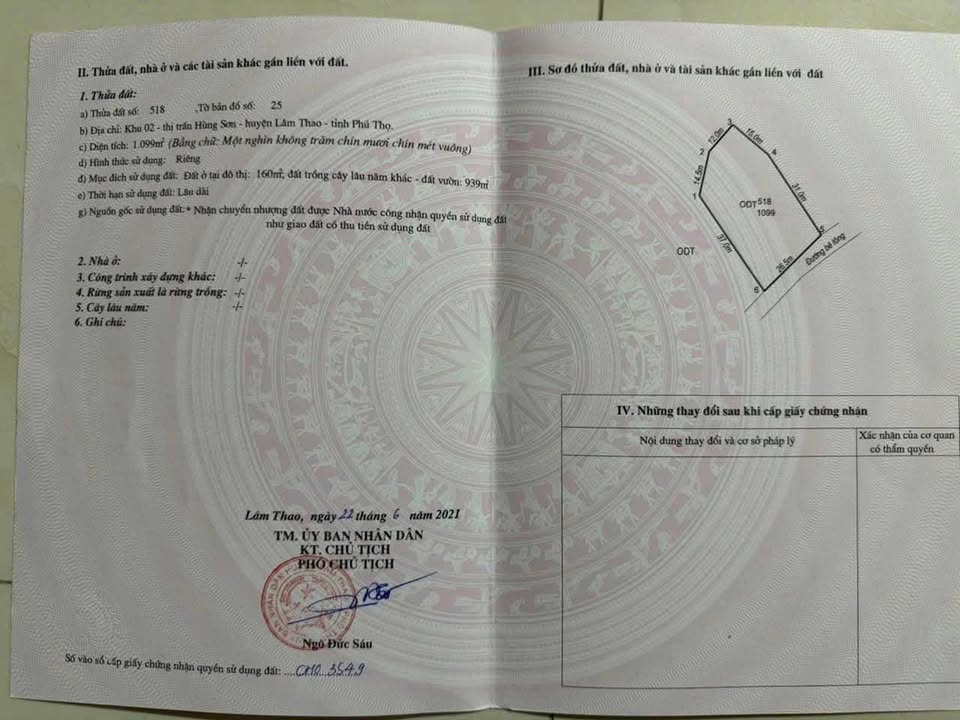 II. Thửa đất, nhà ở và các tài sản khác gắn liền với đất.
1. Thửa đất:
a) Thửa đất số: 518 ,Tờ bản đồ số: 25
b) Địa chỉ: Khu 02 - thị trấn Hùng Sơn - huyện Lâm Thao - tỉnh Phú Thọ.
c) Diện tích: 1.099m² (Bằng chữ: Một nghìn không trăm chín mươi chín mét vuông)
d) Hình thức sử dụng: Riêng
đ) Mục đích sử dụng đất: Đất ở tại đô thị: 160m²; đất trồng cây lâu năm khác - đất vườn: 939m²
e) Thời hạn sử dụng đất: Lâu dài
g) Nguồn gốc sử dụng đất: * Nhận chuyển nhượng đất được Nhà nước công nhận quyền sử dụng đất
như giao đất có thu tiền sử dụng đất
2. Nhà ở: -/-
3. Công trình xây dựng khác: -/-
4. Rừng sản xuất là rừng trồng: -/-
5. Cây lâu năm: -/-
6. Ghi chú:
Lâm Thao, ngày 22 tháng 6 năm 2021
TM. ỦY BAN NHÂN DÂN
KT. CHỦ TỊCH
PHÓ CHỦ TỊCH
Ngô Đức Sáu
Số vào sổ cấp giấy chứng nhận quyền sử dụng đất: ....CH0 3549
III. Sơ đồ thửa đất, nhà ở và tài sản khác gắn liền với đất
3
12.0m
15.0m
2
4
14.5m
31.0m
1
ODT 518
1099
5
37.0m
ODT
26.5m
Đường bê tông
6
IV. Những thay đổi sau khi cấp giấy chứng nhận
Nội dung thay đổi và cơ sở pháp lý
Xác nhận của cơ quan
có thẩm quyền